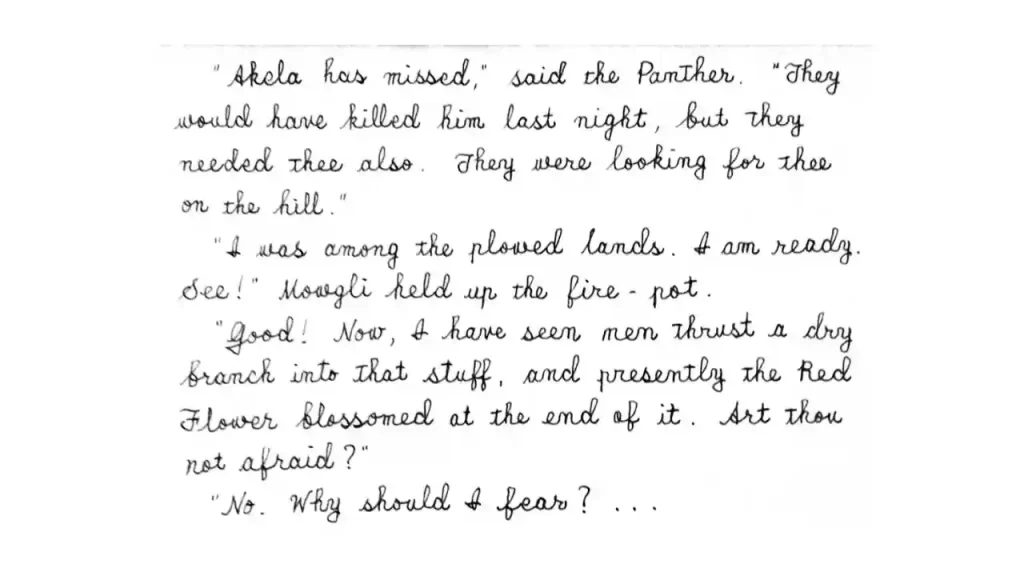 "Akela has missed," said the Panther. "They
would have killed him last night, but they
needed thee also. They were looking for thee
on the hill."
"I was among the plowed lands. I am ready.
See!" Mowgli held up the fire-pot.
"Good! Now, I have seen men thrust a dry
branch into that stuff, and presently the Red
Flower blossomed at the end of it. Art thou
not afraid?"
"No. Why should I fear? ...